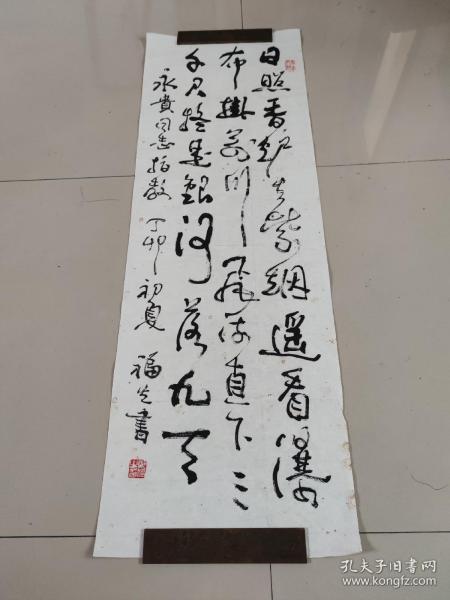 日照香炉生紫烟遥看瀑
布掛前川飛流直下三
千尺疑是銀河落九天
永貴同志指教 丁卯初夏 福生書
孔夫子旧书网
www.kongfz.com